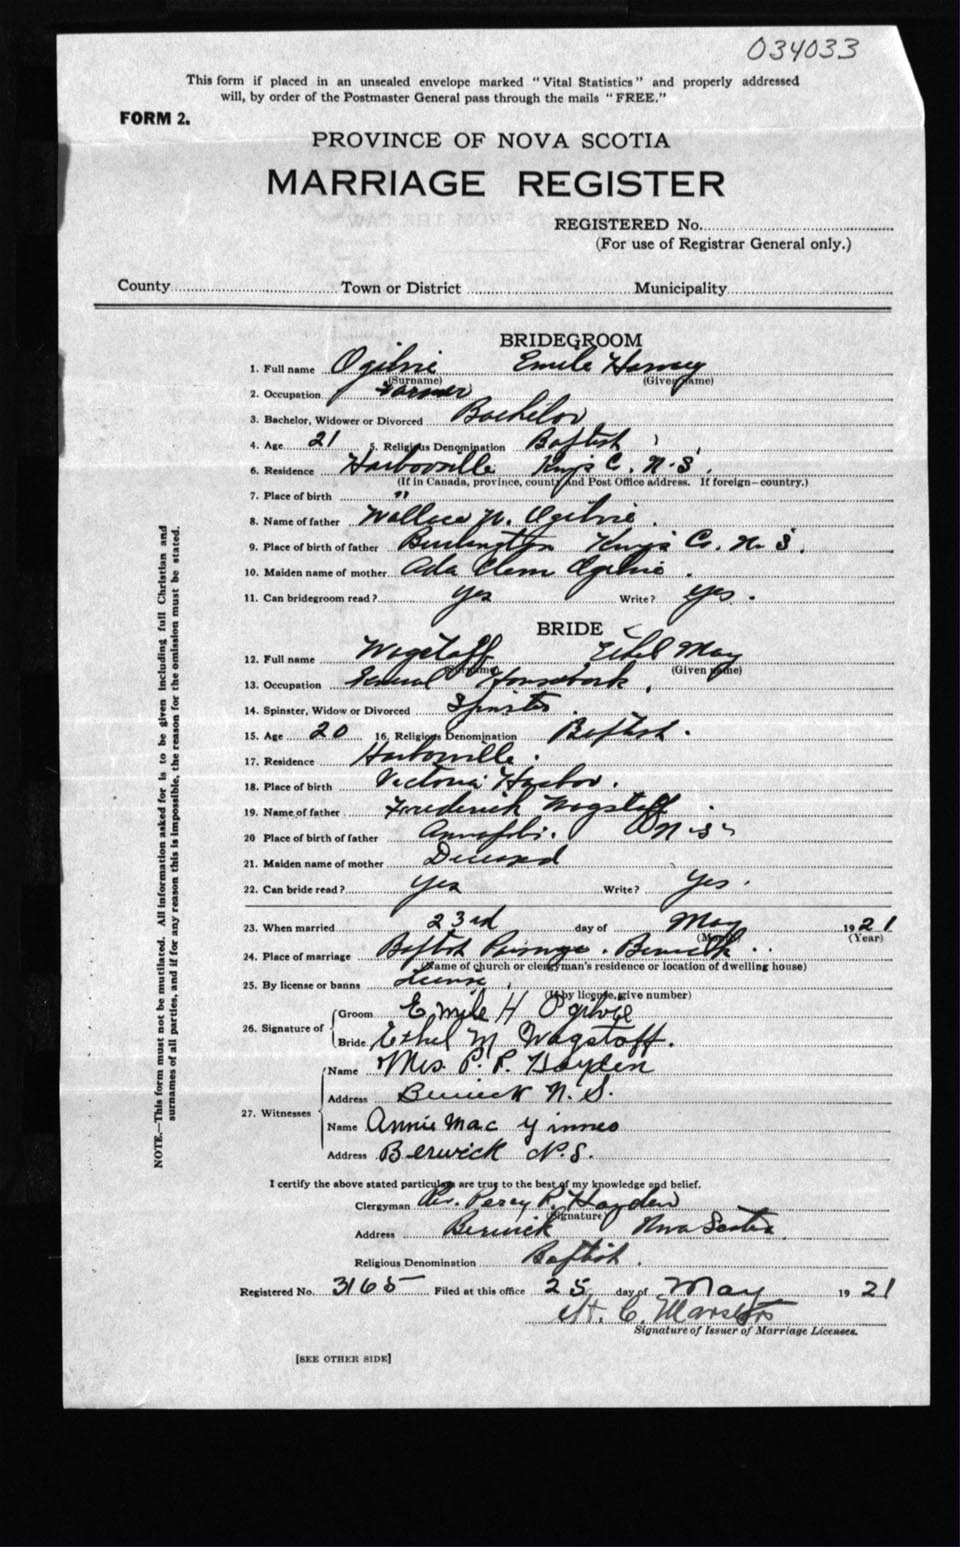 034033
This form if placed in an unsealed envelope marked "Vital Statistics" and properly addressed
will, by order of the Postmaster General pass through the mails "FREE."
FORM 2.
PROVINCE OF NOVA SCOTIA
MARRIAGE REGISTER
REGISTERED No.
(For use of Registrar General only.)
County Town or District Municipality
BRIDEGROOM
1. Full name Ogilvie Emile Harvey
(Surname) (Given name)
2. Occupation Farmer
3. Bachelor, Widower or Divorced Bachelor
4. Age 21 5. Religious Denomination Baptist
6. Residence Harborville Kings C. N.S.
(If in Canada, province, county and Post Office address. If foreign—country.)
7. Place of birth "
8. Name of father Wallace N. Ogilvie.
9. Place of birth of father Burlington Kings Co. N.S.
10. Maiden name of mother Ada Clem Ogilvie.
11. Can bridegroom read? yes Write? yes.
BRIDE
12. Full name Wagstaff Ethel May
(Surname) (Given name)
13. Occupation General Housework.
14. Spinster, Widow or Divorced Spinster.
15. Age 20 16. Religious Denomination Baptist.
17. Residence Harborville.
18. Place of birth Victoria Harbor.
19. Name of father Frederick Wagstaff
20 Place of birth of father N-S-
21. Maiden name of mother Deceased
22. Can bride read? yes Write? yes.
23. When married 23rd day of May 1921
(Month) (Year)
24. Place of marriage Baptist Parsonage. Berwick
(Name of church or clergyman's residence or location of dwelling house)
25. By license or banns License
(If by license, give number)
26. Signature of Groom Emile H Ogilvie
Bride Ethel M Wagstaff.
27. Witnesses Name Mrs. P. R. Hayden
Address Berwick N.S.
Name Annie Mac
Address Berwick N.S.
I certify the above stated particulars are true to the best of my knowledge and belief.
Clergyman Rev. Percy R. Hayden
(Signature)
Address Berwick Nova Scotia
Religious Denomination Baptist.
Registered No. 3165 Filed at this office 25 day of May 1921
H. C. Marsters
Signature of Issuer of Marriage Licenses.
[SEE OTHER SIDE]
NOTE.—This form must not be mutilated. All information asked for is to be given including full Christian and
surnames of all parties, and if for any reason this is impossible, the reason for the emission must be stated.